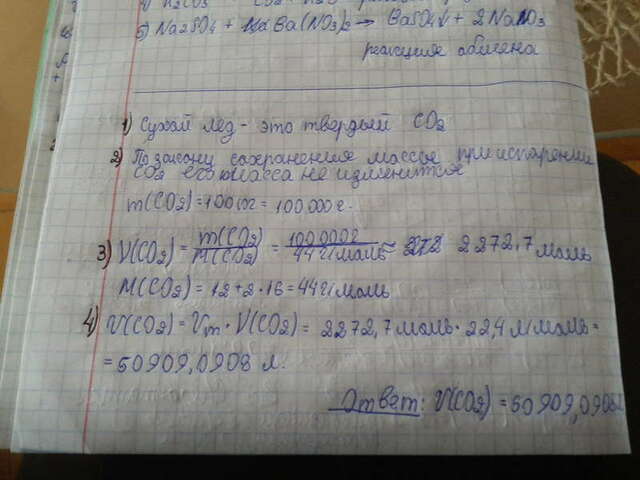 5) Na2SO4 + Ba(NO3)2 → BaSO4↓ + 2NaNO3
реакция обмена
1) Сухой лёд - это твердый CO2
2) По закону сохранения массы при испарении
CO2 его масса не изменится
m(CO2) = 100 кг = 100 000 г.
3) V(CO2) = m(CO2)/M(CO2) = 100000г/44г/моль ≈ 2272,7 моль
M(CO2) = 12+2·16 = 44г/моль
4) V(CO2) = Vm · V(CO2) = 2272,7 моль · 22,4 л/моль =
= 50909,0908 л.
Ответ: V(CO2) = 50909,0908л